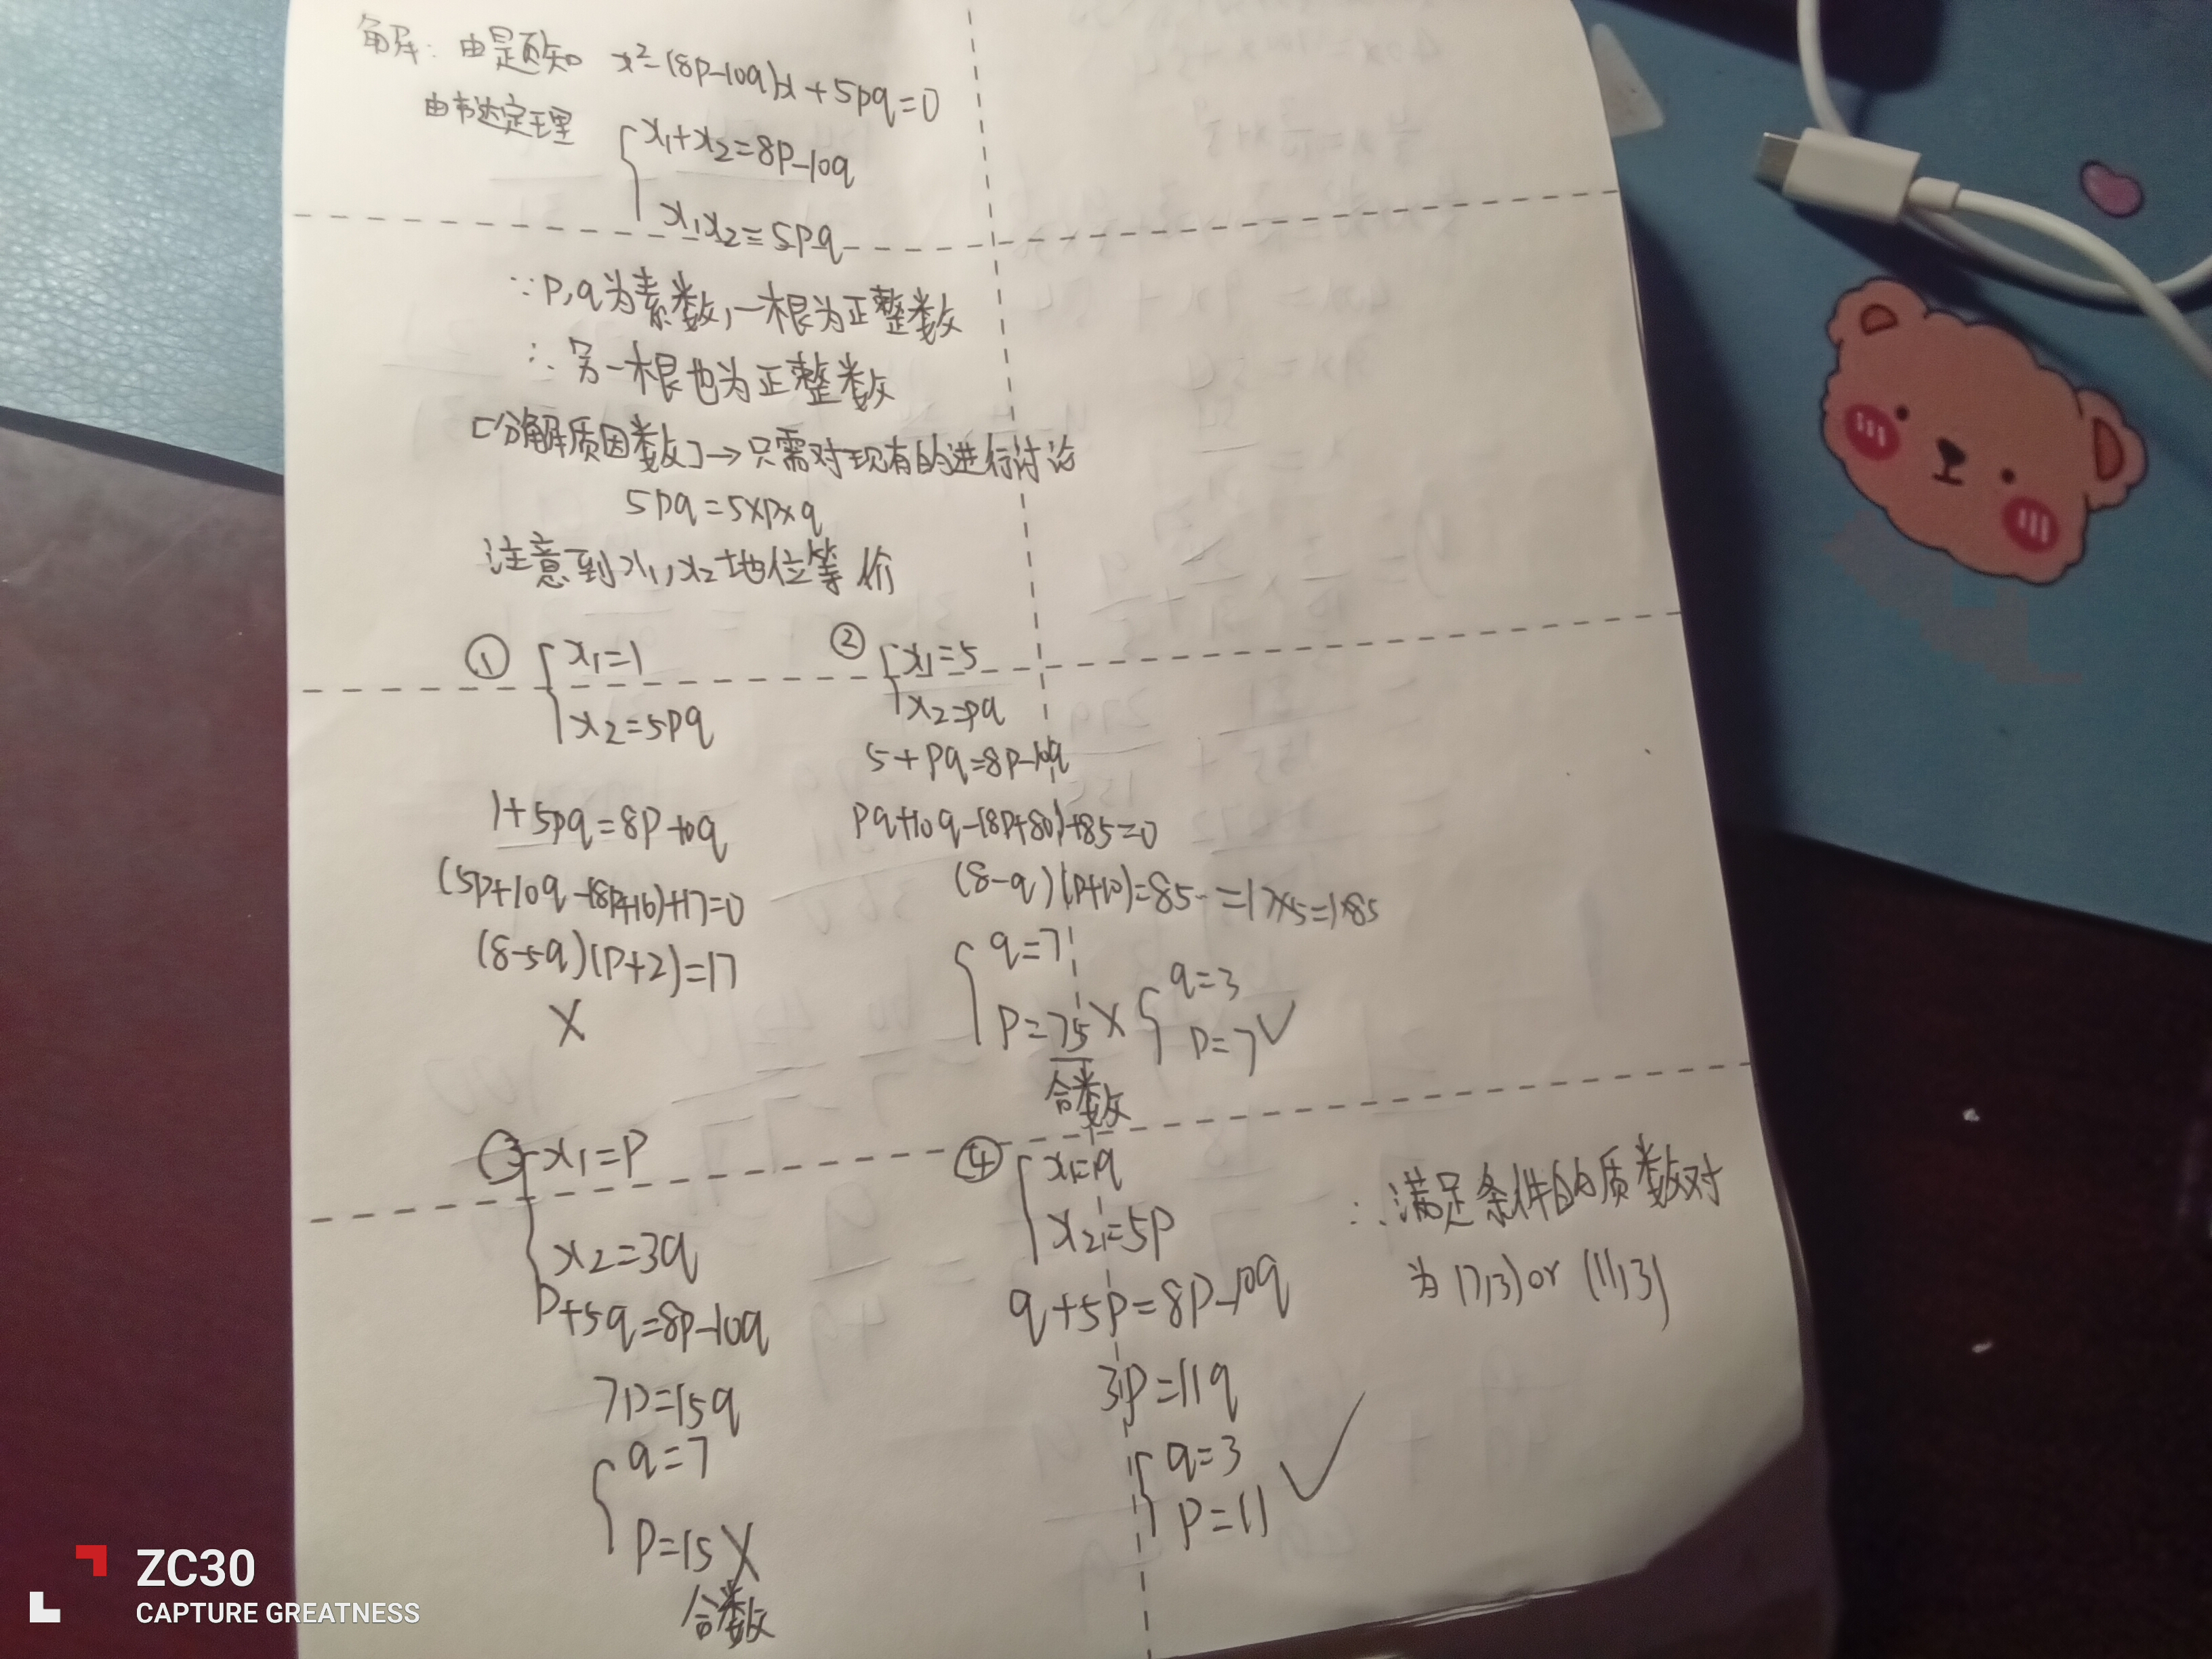 解：由题知 x²-(8p-10q)x+5pq=0
由韦达定理
x₁+x₂=8p-10q
x₁x₂=5pq
∵p,q为素数,一根为正整数
∴另一根也为正整数
[分解质因数]→只需对现有的进行讨论
5pq=5×p×q
注意到x₁,x₂地位等价
① x₁=1
x₂=5pq
1+5pq=8p-10q
(5p+10q-(8p+16)+17=0
(8-5q)(p+2)=17
×
② x₁=5
x₂=pq
5+pq=8p-10q
pq+10q-(8p+80)+85=0
(8-q)(p+10)=85=17×5=1×85
q=7
p=75×
合数
q=3
p=7✓
③ x₁=p
x₂=3q
p+5q=8p-10q
7p=15q
q=7
p=15×
合数
④ x₁=q
x₂=5p
q+5p=8p-10q
3p=11q
q=3
p=11 ✓
∴满足条件的质数对
为(7,3)or (11,3)
ZC30
CAPTURE GREATNESS